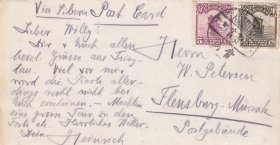 Via Siberia Post Card
Lieber Willy!
Dir u. Euch allen
herzl. Grüsse aus Tsing-
tau. Viel vor mir
wird die Karte aller-
dings wohl nicht bei
Euch ankommen. - Machten
eine grosse Tour in den
als. Herrliches Wetter.
Dein Heinrich
Herrn
W. Petersen
Flensburg-Mürwik
Postgebäude